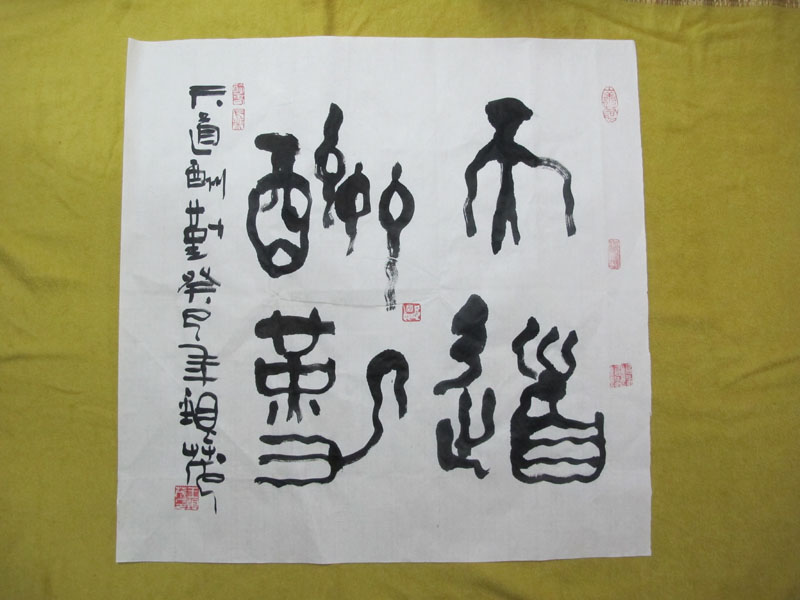 天道
酬勤
天道酬勤癸巳年